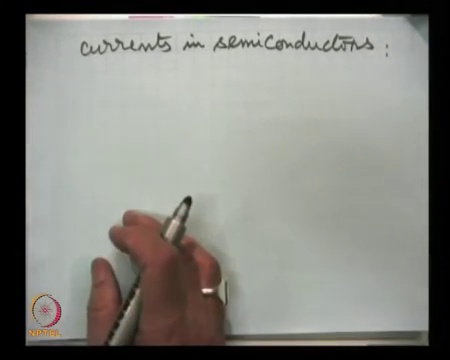 currents in semiconductors:
NPTEL